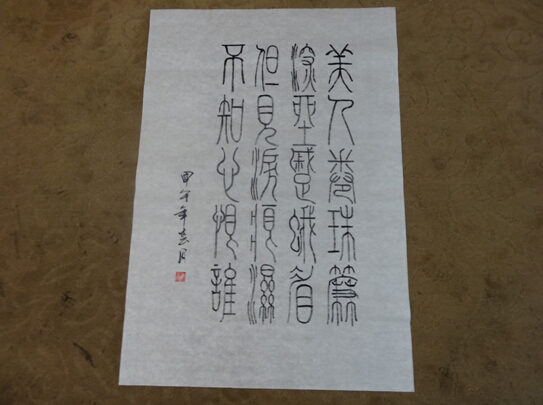 美人卷珠簾
深坐顰蛾眉
但見淚痕濕
不知心恨誰
甲午年